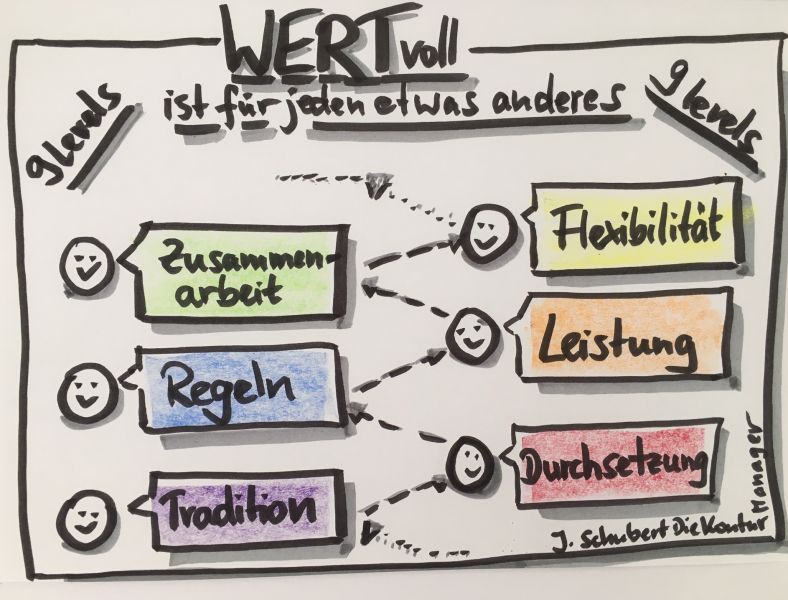 WERTvoll
ist für jeden etwas anderes
9 Levels
9 Levels
Flexibilität
Zusammen-
arbeit
Leistung
Regeln
Durchsetzung
Tradition
J. Schubert Die Kontur
Manager